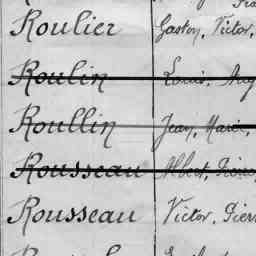 Roulier Gaston, Victor,
Roulin Louis, Aug
Roullin Jean, Marie,
Rousseau Albert, Pierre,
Rousseau Victor, Pierr